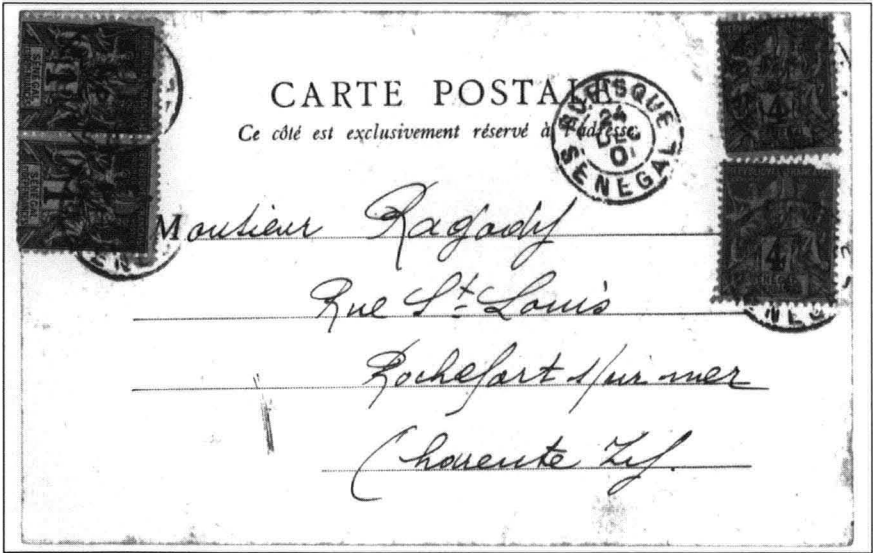 CARTE POSTALE
Ce côté est exclusivement réservé à l'adresse
RUFISQUE
24
DEC
01
SENEGAL
1
SENEGAL
1
SENEGAL
4
4
Monsieur
Rue St Louis
Rochefort s/ur mer
Charente